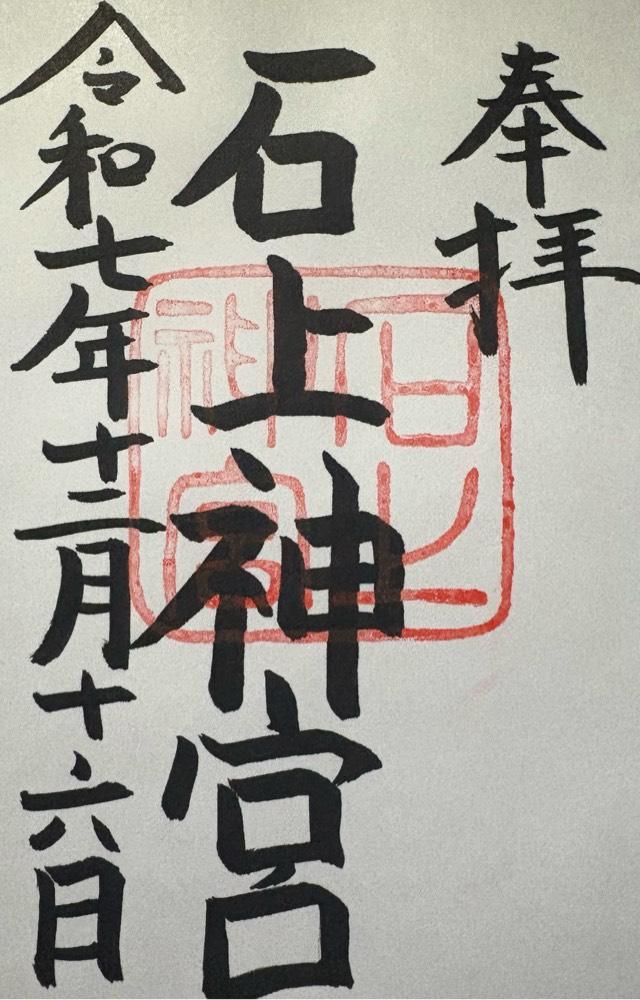 奉拝
石上神宮
令和七年十二月十六日
石上神宮